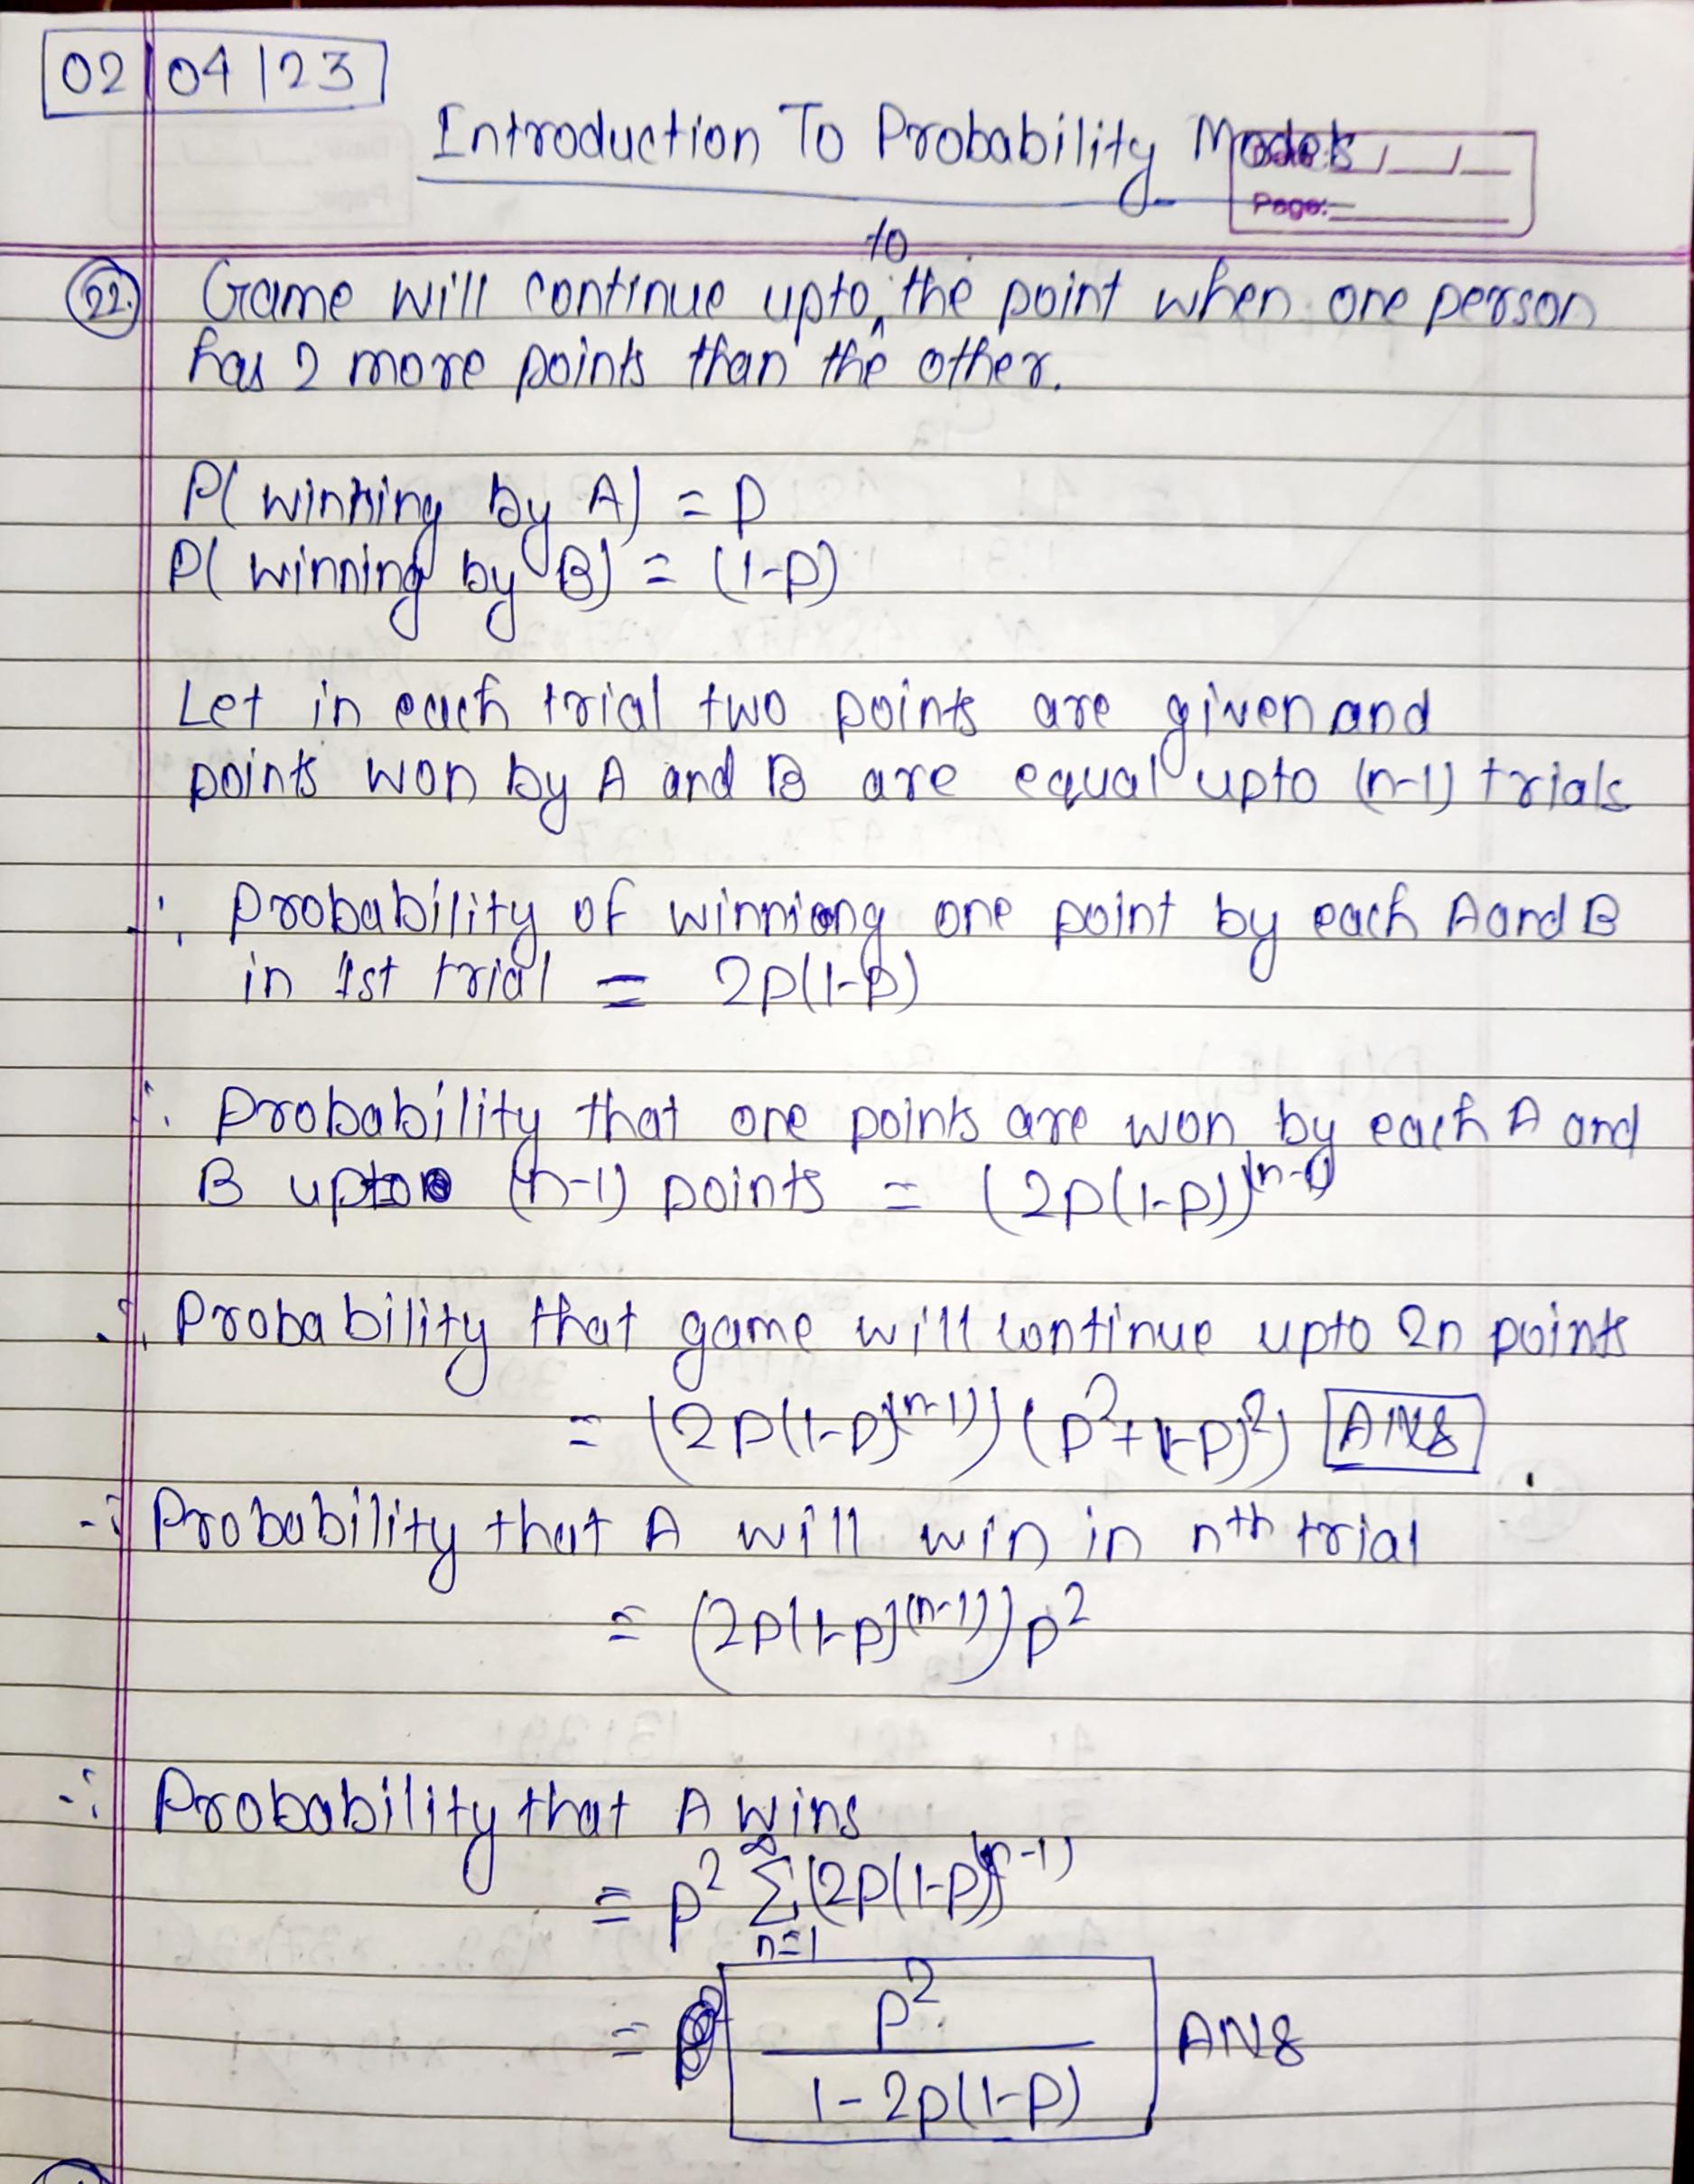 02/04/23
Introduction To Probability Models
Date: __/__/__
Page:
to
22. Game will continue upto ^ the point when one person
has 2 more points than the other.
P( winning by A) = p
P( winning by B) = (1-p)
Let in each trial two points are given and
points won by A and B are equal upto (n-1) trials
∴ probability of winniong one point by each A and B
in 1st trial = 2p(1-p)
∴ probability that one points are won by each A and
B upto (n-1) points = (2p(1-p))^(n-1)
∴ Probability that game will continue upto 2n points
= (2p(1-p)^(n-1)) (p²+(1-p)²) ANS
∴ Probability that A will win in nth trial
= (2p(1-p)^(n-1)) p²
∴ Probability that A wins
= p² ∑_{n=1}^{∞} (2p(1-p))^(n-1)
= p² / (1-2p(1-p)) ANS